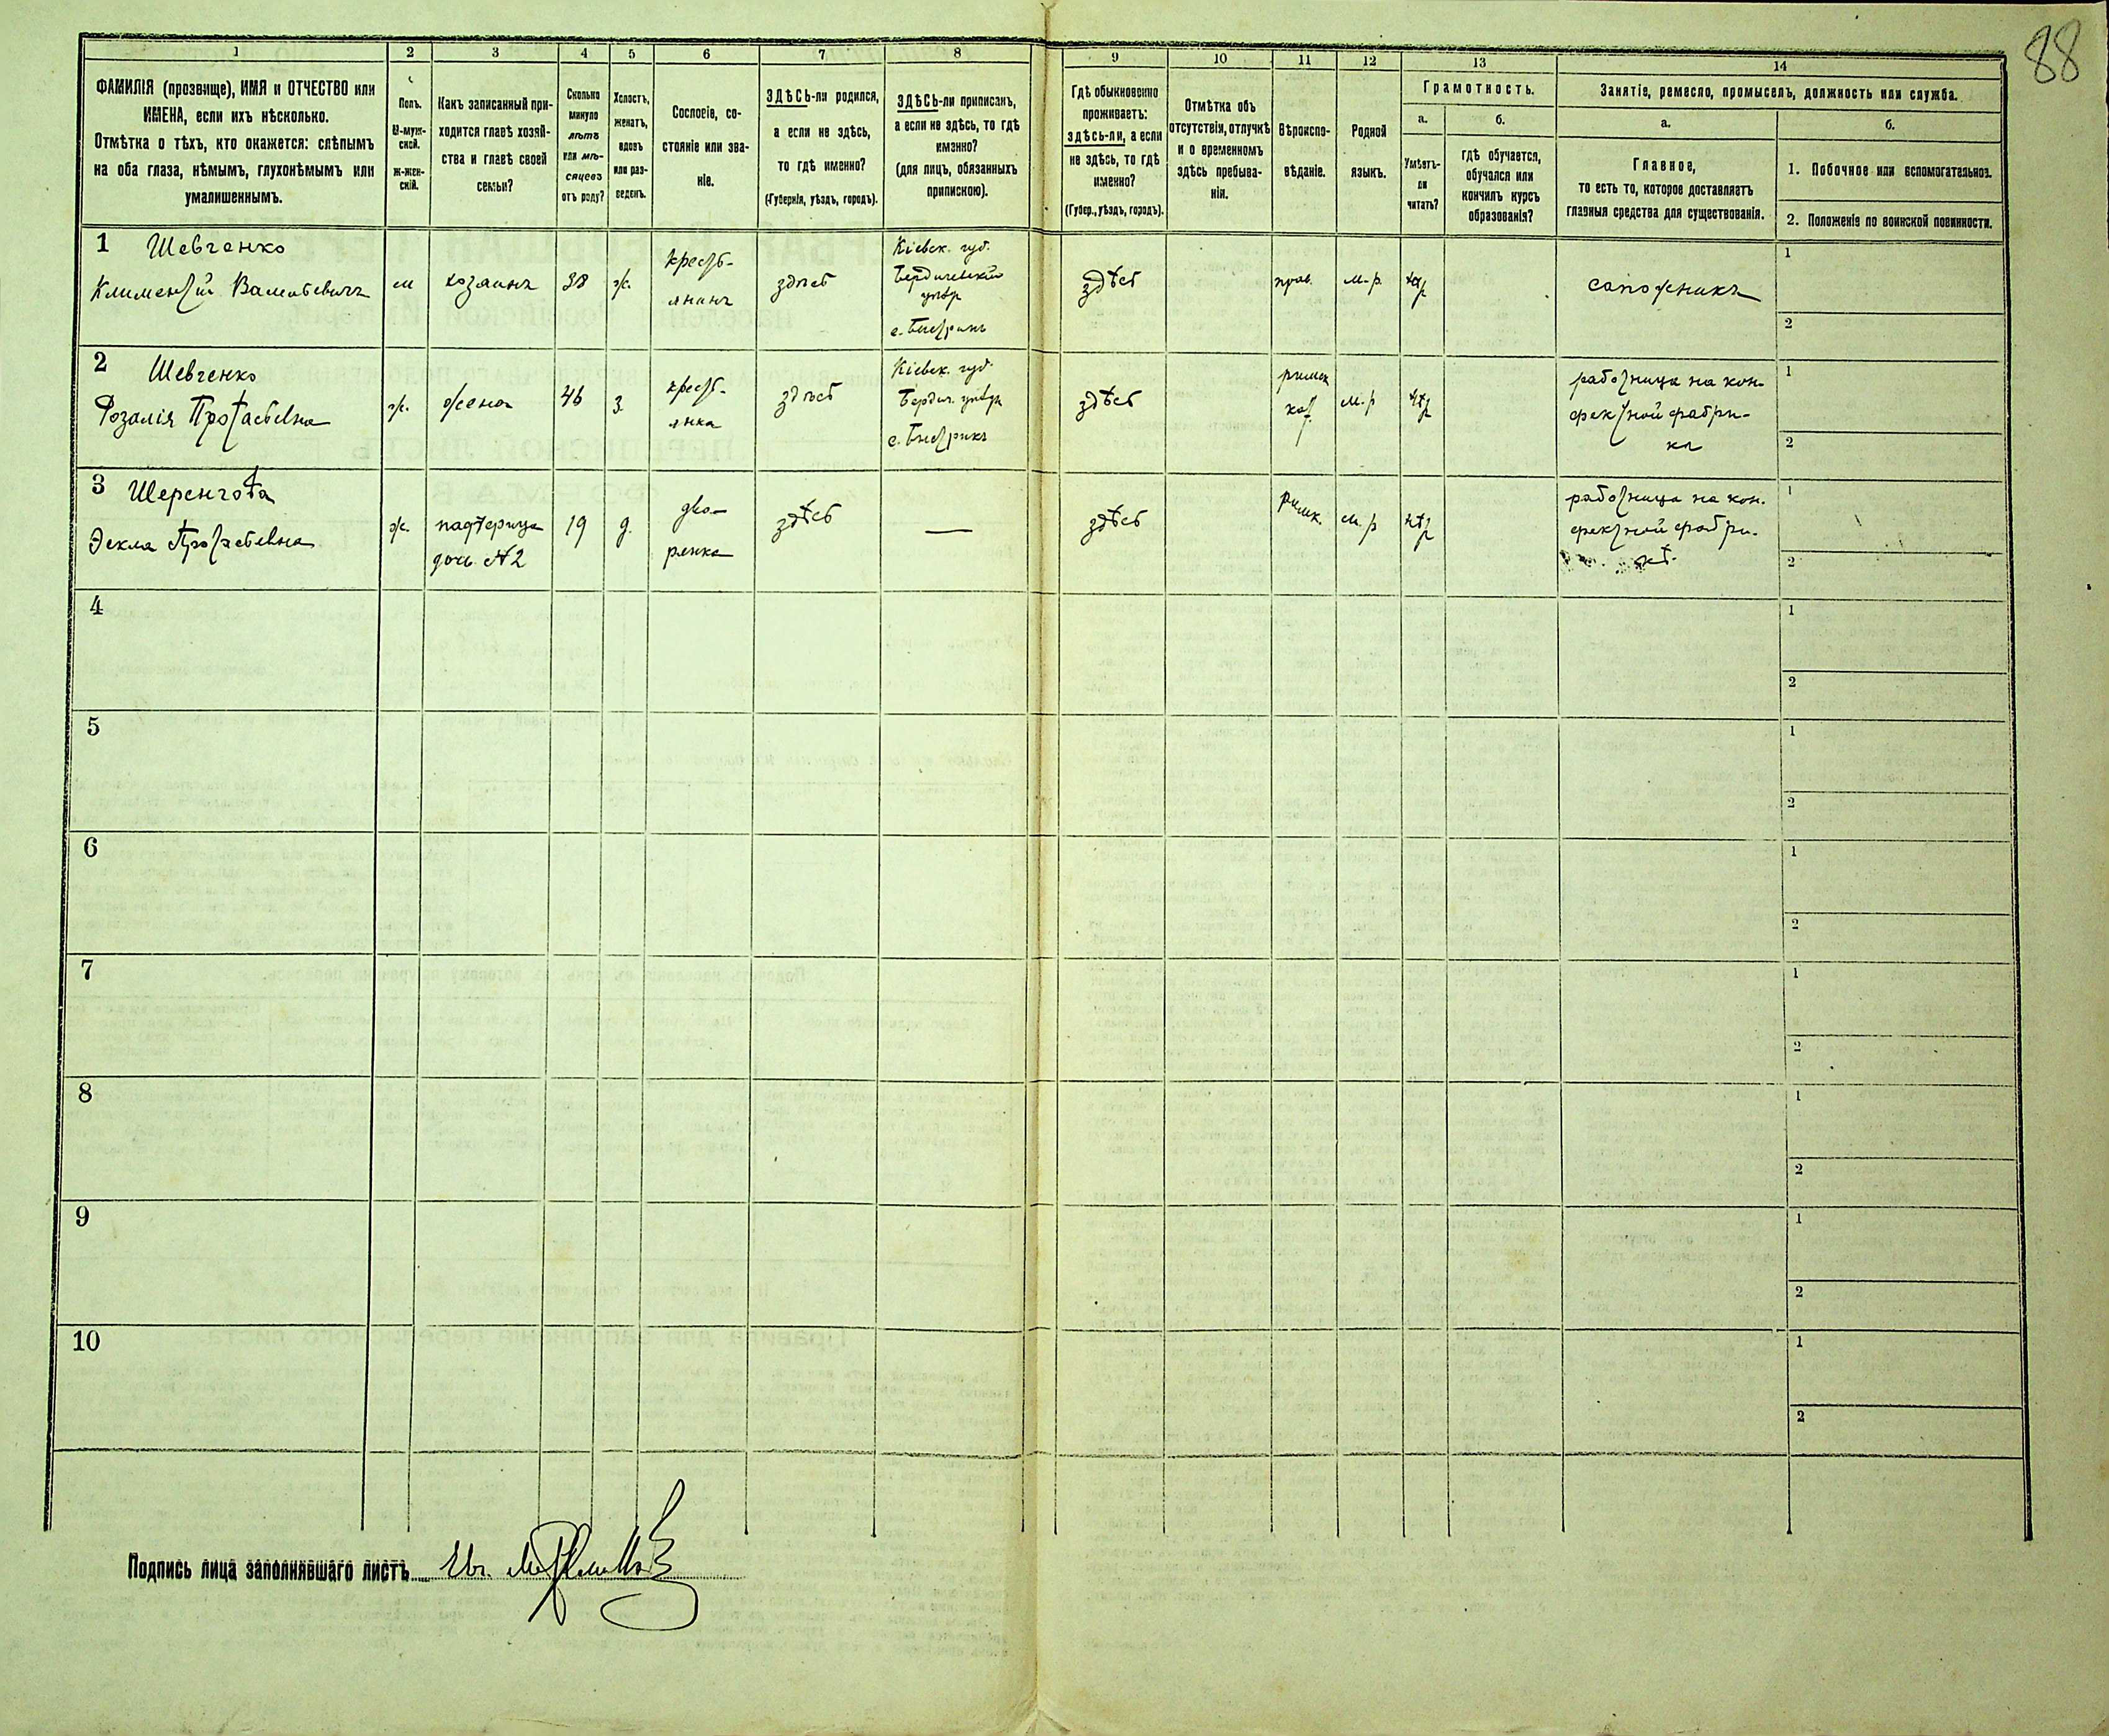 88
1 2 3 4 5 6 7 8 9 10 11 12 13 14
ФАМИЛІЯ (прозвище), ИМЯ и ОТЧЕСТВО или
ИМЕНА, если ихъ нѣсколько.
Отмѣтка о тѣхъ, кто окажется: слѣпымъ
на оба глаза, нѣмымъ, глухонѣмымъ или
умалишеннымъ.
Полъ.
М-муж-
ской.
Ж-жен-
скій.
Какъ записанный при-
ходится главѣ хозяй-
ства и главѣ своей
семьи?
Сколько
минуло
лѣтъ
или мѣ-
сяцевъ
отъ роду?
Холостъ,
женатъ,
вдовъ
или раз-
веденъ.
Сословіе, со-
стояніе или зва-
ніе.
ЗДѢСЬ-ли родился,
а если не здѣсь,
то гдѣ именно?
(Губернія, уѣздъ, городъ).
ЗДѢСЬ-ли приписанъ,
а если не здѣсь, то гдѣ
именно?
(для лицъ, обязанныхъ
припискою).
Гдѣ обыкновенно
проживаетъ:
здѣсь-ли, а если
не здѣсь, то гдѣ
именно?
(Губер., уѣздъ, городъ).
Отмѣтка объ
отсутствіи, отлучкѣ
и о временномъ
здѣсь пребыва-
ніи.
Вѣроиспо-
вѣданіе.
Родной
языкъ.
Грамотность.
а.
Умѣетъ-
ли
читать?
б.
гдѣ обучается,
обучался или
кончилъ курсъ
образованія?
Занятіе, ремесло, промыселъ, должность или служба.
а.
Главное,
то есть то, которое доставляетъ
главныя средства для существованія.
б.
1. Побочное или вспомогательное.
2. Положеніе по воинской повинности.
1 Шевченко
Климентій
м
хозяинъ
38
ж.
крестъ-
янинъ
здѣсь
Кіевск. губ.
Бердичевскій
уѣзд
здѣсь
прав.
м.-р.
сапожникъ
1
2
2 Шевченко
Розалія Протасьевна
ж.
жена
46
з.
крестъ-
янка
здѣсь
Кіевск. губ.
Бердич. уѣзда
здѣсь
римск
кат.
м.-р
работница на кон-
фектной фабри-
ки
1
2
3
Текла Протасьевна
ж.
падчерица
дочь №2
19
д.
дво-
рянка
здѣсь
—
здѣсь
римк.
м.р
работница на кон-
фектной фабри-
кѣ.
1
2
4
1
2
5
1
2
6
1
2
7
1
2
8
1
2
9
1
2
10
1
2
Подпись лица заполнявшаго листъ